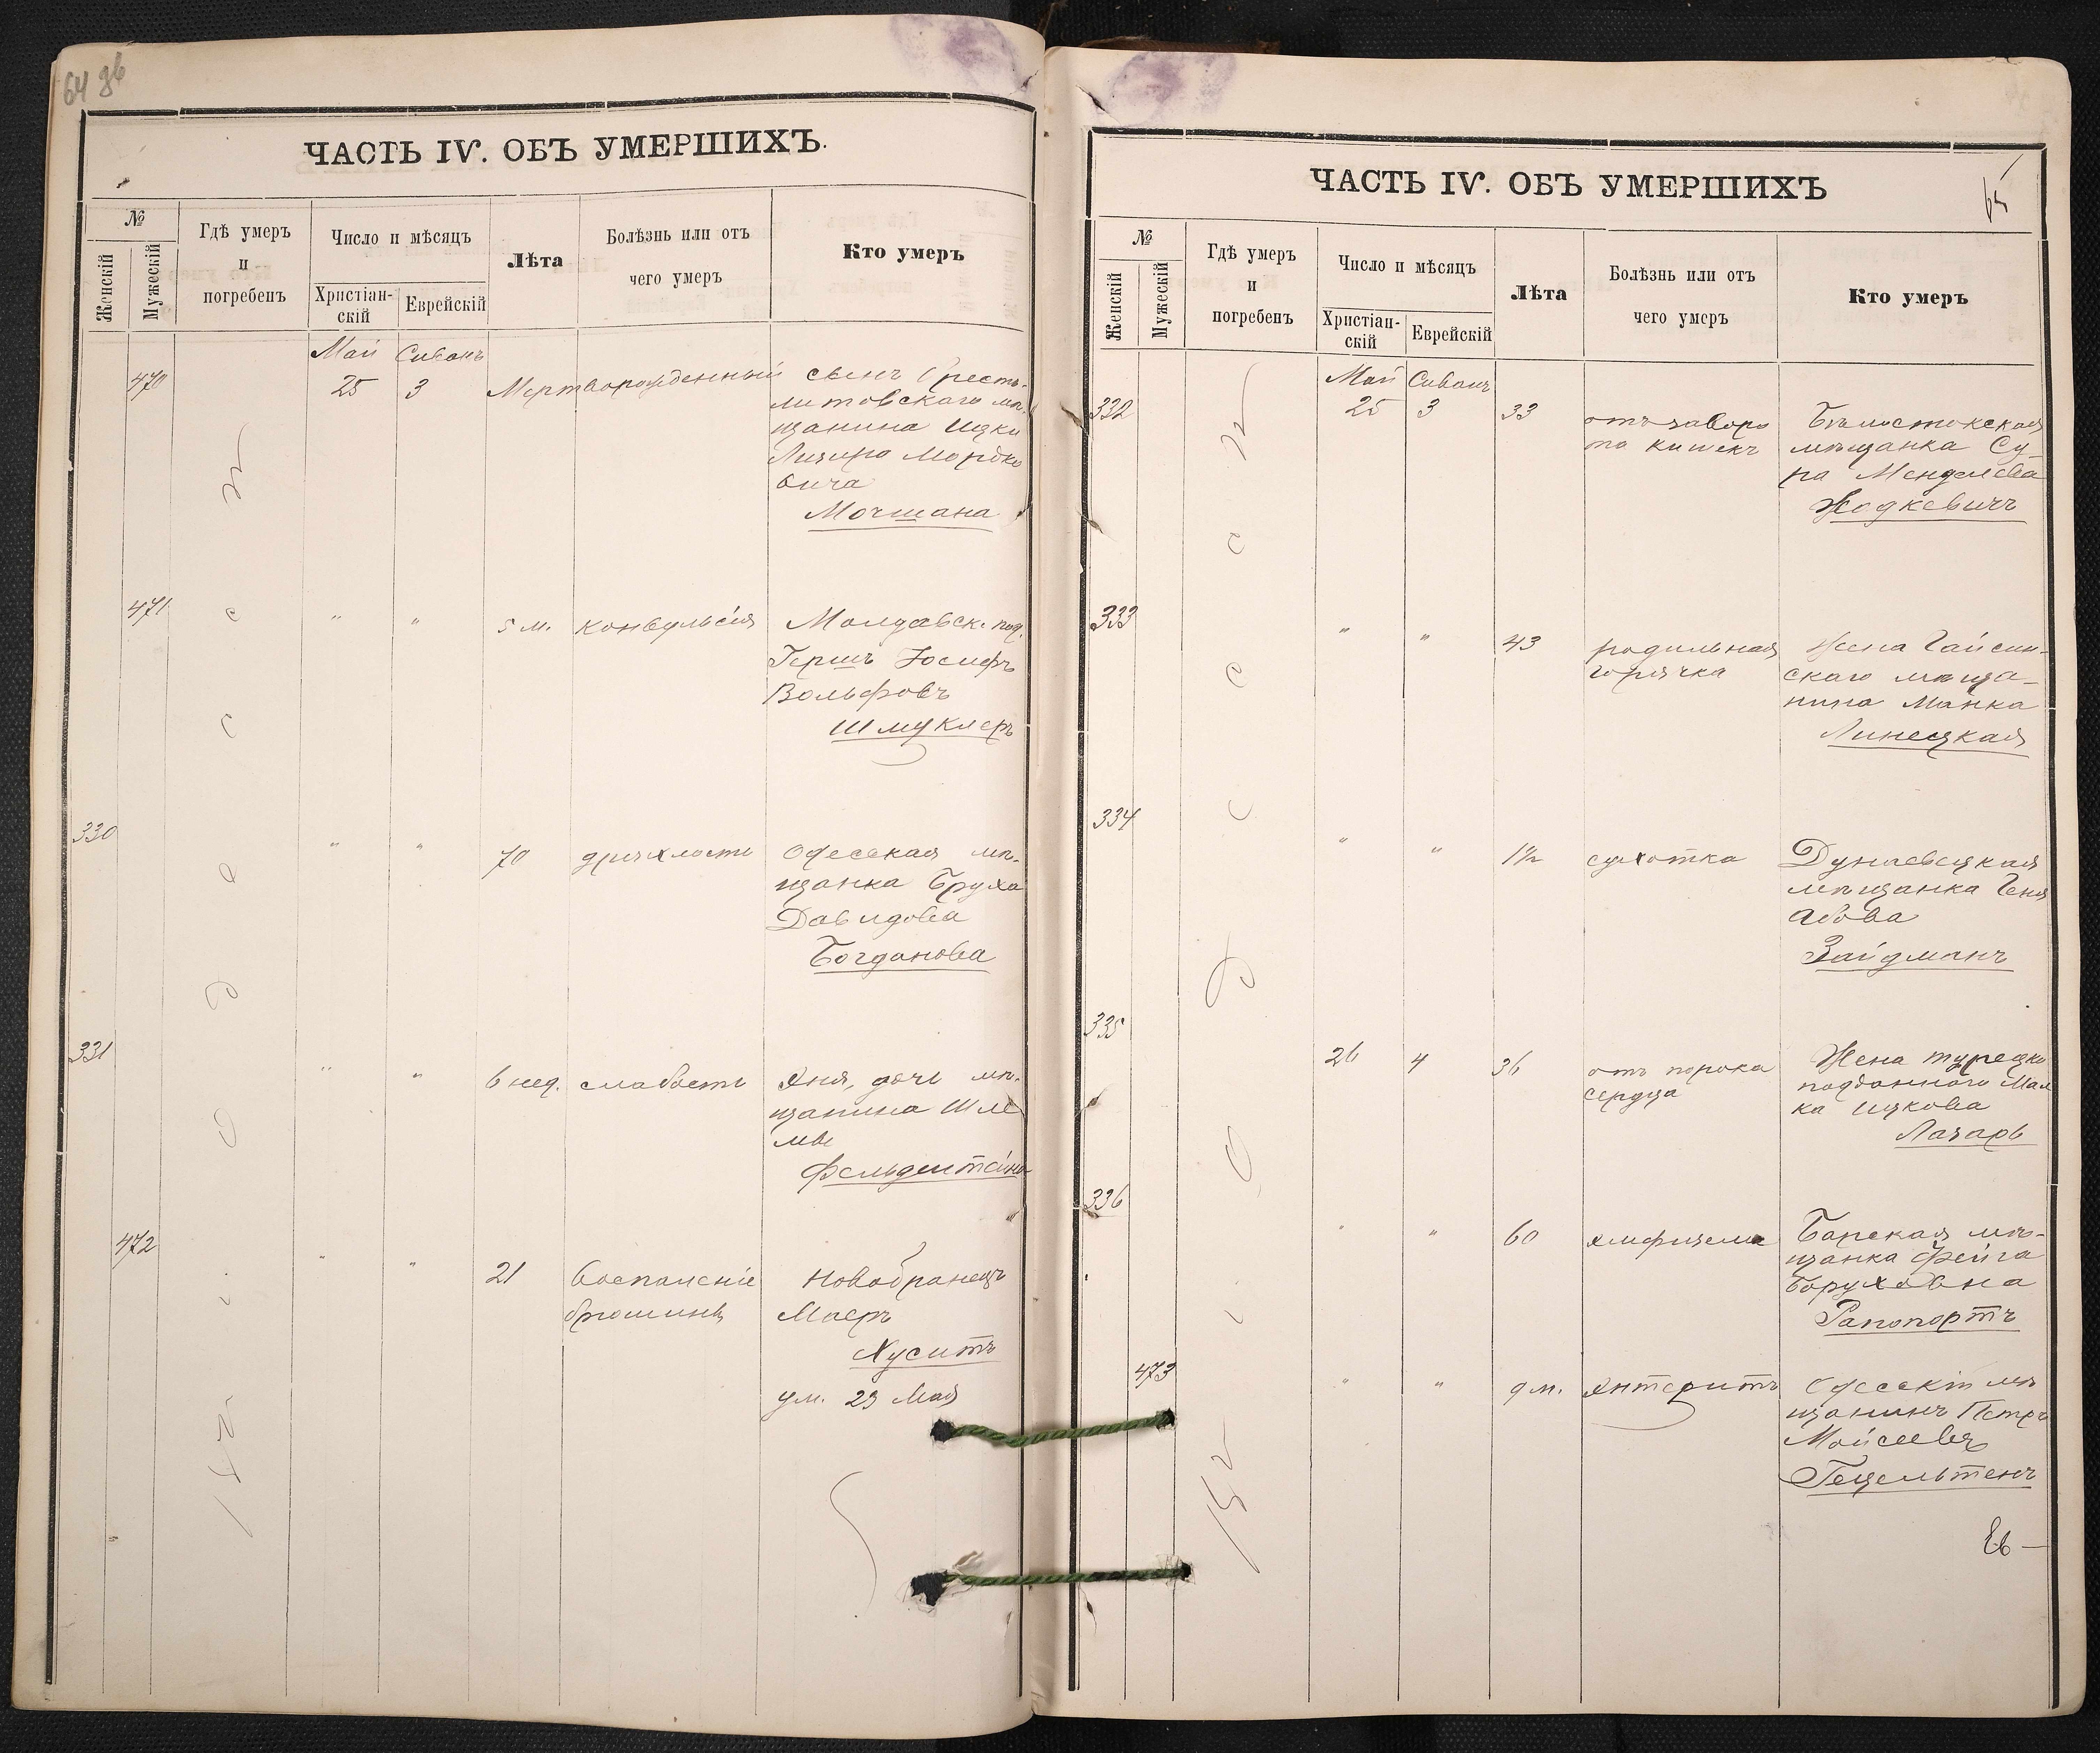 64 зв
ЧАСТЬ IV. ОБЪ УМЕРШИХЪ.
№
Женскій
Мужескій
Гдѣ умеръ
и
погребенъ
Число и мѣсяцъ
Христіан-
скій
Еврейскій
Лѣта
Болѣзнь или отъ
чего умеръ
Кто умеръ
Май Сиванъ
470 25 3 Мертворожденный сынъ Брестъ-
литовскаго мѣ-
щанина Ицки
Лизера Мордко
вича
Мочмана
471 " " 5 м. конвульсія Молдавск. под.
Гершъ Іосифъ
Вольфовъ
Шмуклеръ
330 " " 70 дряхлость Одесская мѣ-
щанка Бруха
Давидова
Богданова
331 " " 6 нед. слабость Хня, дочь мѣ-
щанина Шле
мы
Фельдштейна
472 " " 21 воспаленіе Новобранецъ
брюшины Маеръ
Хуситъ
ум. 23 Мая
Одесса
ЧАСТЬ IV. ОБЪ УМЕРШИХЪ
65
№
Женскій
Мужескій
Гдѣ умеръ
и
погребенъ
Число и мѣсяцъ
Христіан-
скій
Еврейскій
Лѣта
Болѣзнь или отъ
чего умеръ
Кто умеръ
Май Сиванъ
332 25 3 33 отъ заворо Бѣлостокская
та кишекъ мѣщанка Су-
ра Менделева
Ходкевичъ
333 " " 43 родильная Жена Гайсин-
горячка скаго мѣща-
нина Манка
Линецкая
334 " " 1½ сухотка Дунаевецкая
мѣщанка Геня
Абова
Зайдманъ
335 26 4 36 отъ порока Жена турецко
сердца подданнаго Мал
ка Ицкова
Лазарь
336 " " 60 эмфизема Барская мѣ-
щанка Фейга
Боруховна
Рапопортъ
473 " " 9 м. энтеритъ Одесскій мѣ
щанинъ Петръ
Мойсеевъ
Гецельтенъ
Одесса